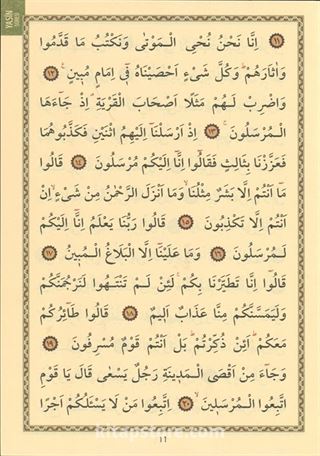 YASİN
SURESİ
﴿١١﴾ اِنَّا نَحْنُ نُحْيِ الْمَوْتٰى وَنَكْتُبُ مَا قَدَّمُوا
وَاٰثَارَهُمْ ؕ وَكُلَّ شَيْءٍ اَحْصَيْنَاهُ ف۪ٓي اِمَامٍ مُب۪ينٍ ﴿١٢﴾
وَاضْرِبْ لَهُمْ مَثَلًا اَصْحَابَ الْقَرْيَةِۢ اِذْ جَٓاءَهَا
الْمُرْسَلُونَۚ ﴿١٣﴾ اِذْ اَرْسَلْنَٓا اِلَيْهِمُ اثْنَيْنِ فَكَذَّبُوهُمَا
فَعَزَّزْنَا بِثَالِثٍ فَقَالُٓوا اِنَّٓا اِلَيْكُمْ مُرْسَلُونَ ﴿١٤﴾ قَالُوا
مَٓا اَنْتُمْ اِلَّا بَشَرٌ مِثْلُنَاۙ وَمَٓا اَنْزَلَ الرَّحْمٰنُ مِنْ شَيْءٍۙ اِنْ
اَنْتُمْ اِلَّا تَكْذِبُونَ ﴿١٥﴾ قَالُوا رَبُّنَا يَعْلَمُ اِنَّٓا اِلَيْكُمْ
لَمُرْسَلُونَ ﴿١٦﴾ وَمَا عَلَيْنَٓا اِلَّا الْبَلَاغُ الْمُب۪ينُ ﴿١٧﴾
قَالُٓوا اِنَّا تَطَيَّرْنَا بِكُمْۚ لَئِنْ لَمْ تَنْتَهُوا لَنَرْجُمَنَّكُمْ
وَلَيَمَسَّنَّكُمْ مِنَّا عَذَابٌ اَل۪يمٌ ﴿١٨﴾ قَالُوا طَٓائِرُكُمْ
مَعَكُمْؕ اَئِنْ ذُكِّرْتُمْؕ بَلْ اَنْتُمْ قَوْمٌ مُسْرِفُونَ ﴿١٩﴾
وَجَٓاءَ مِنْ اَقْصَا الْمَد۪ينَةِ رَجُلٌ يَسْعٰى قَالَ يَا قَوْمِ
اتَّبِعُوا الْمُرْسَل۪ينَۙ ﴿٢٠﴾ اِتَّبِعُوا مَنْ لَا يَسْـَٔلُكُمْ اَجْرًا
kitapstore.com
١١